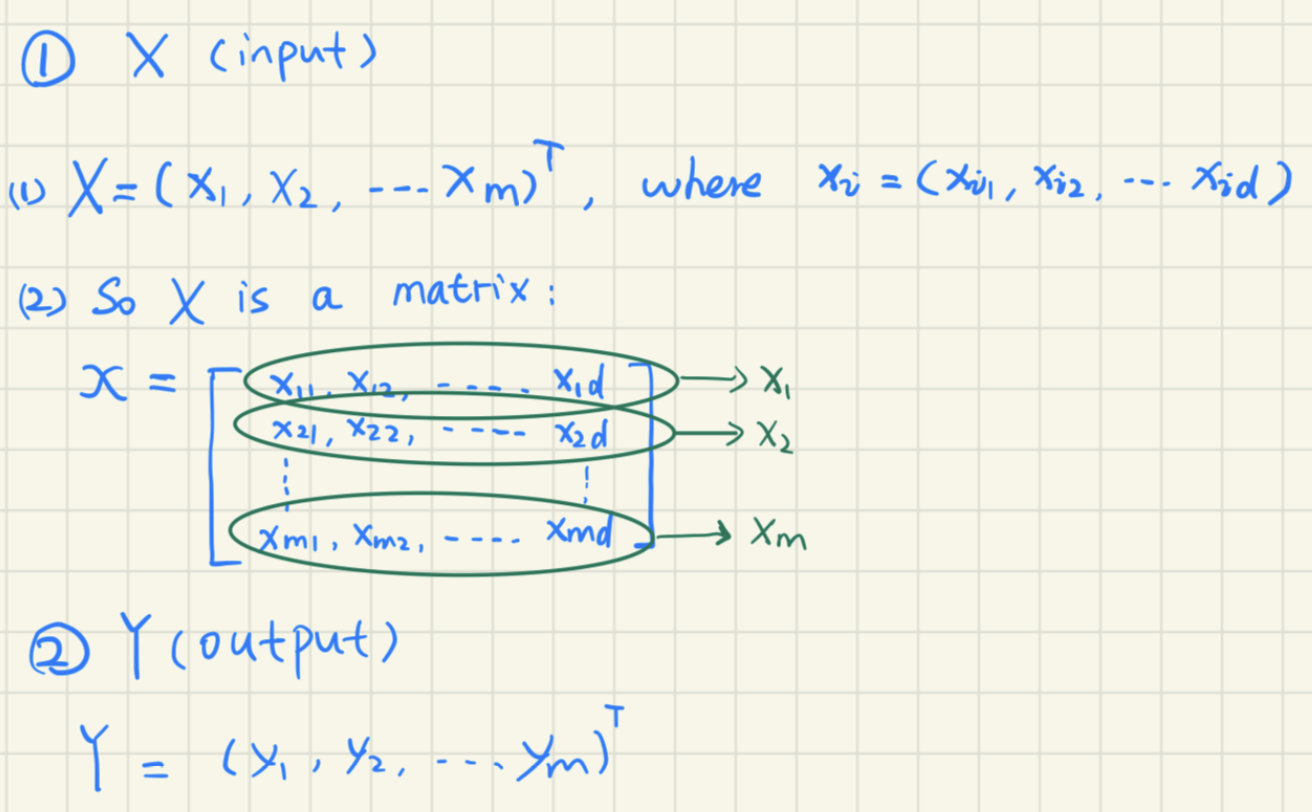 ① X (input)
(1) X = (x₁, x₂, ---- xₘ)ᵀ, where xᵢ = (xᵢ₁, xᵢ₂, --- xᵢd)
(2) So X is a matrix:
x = [ x₁₁, x₁₂, ----- x₁d ] → x₁
x₂₁, x₂₂, ----- x₂d → x₂
xₘ₁, xₘ₂, ----- xₘd → xₘ
② Y (output)
Y = (y₁, y₂, ---- yₘ)ᵀ